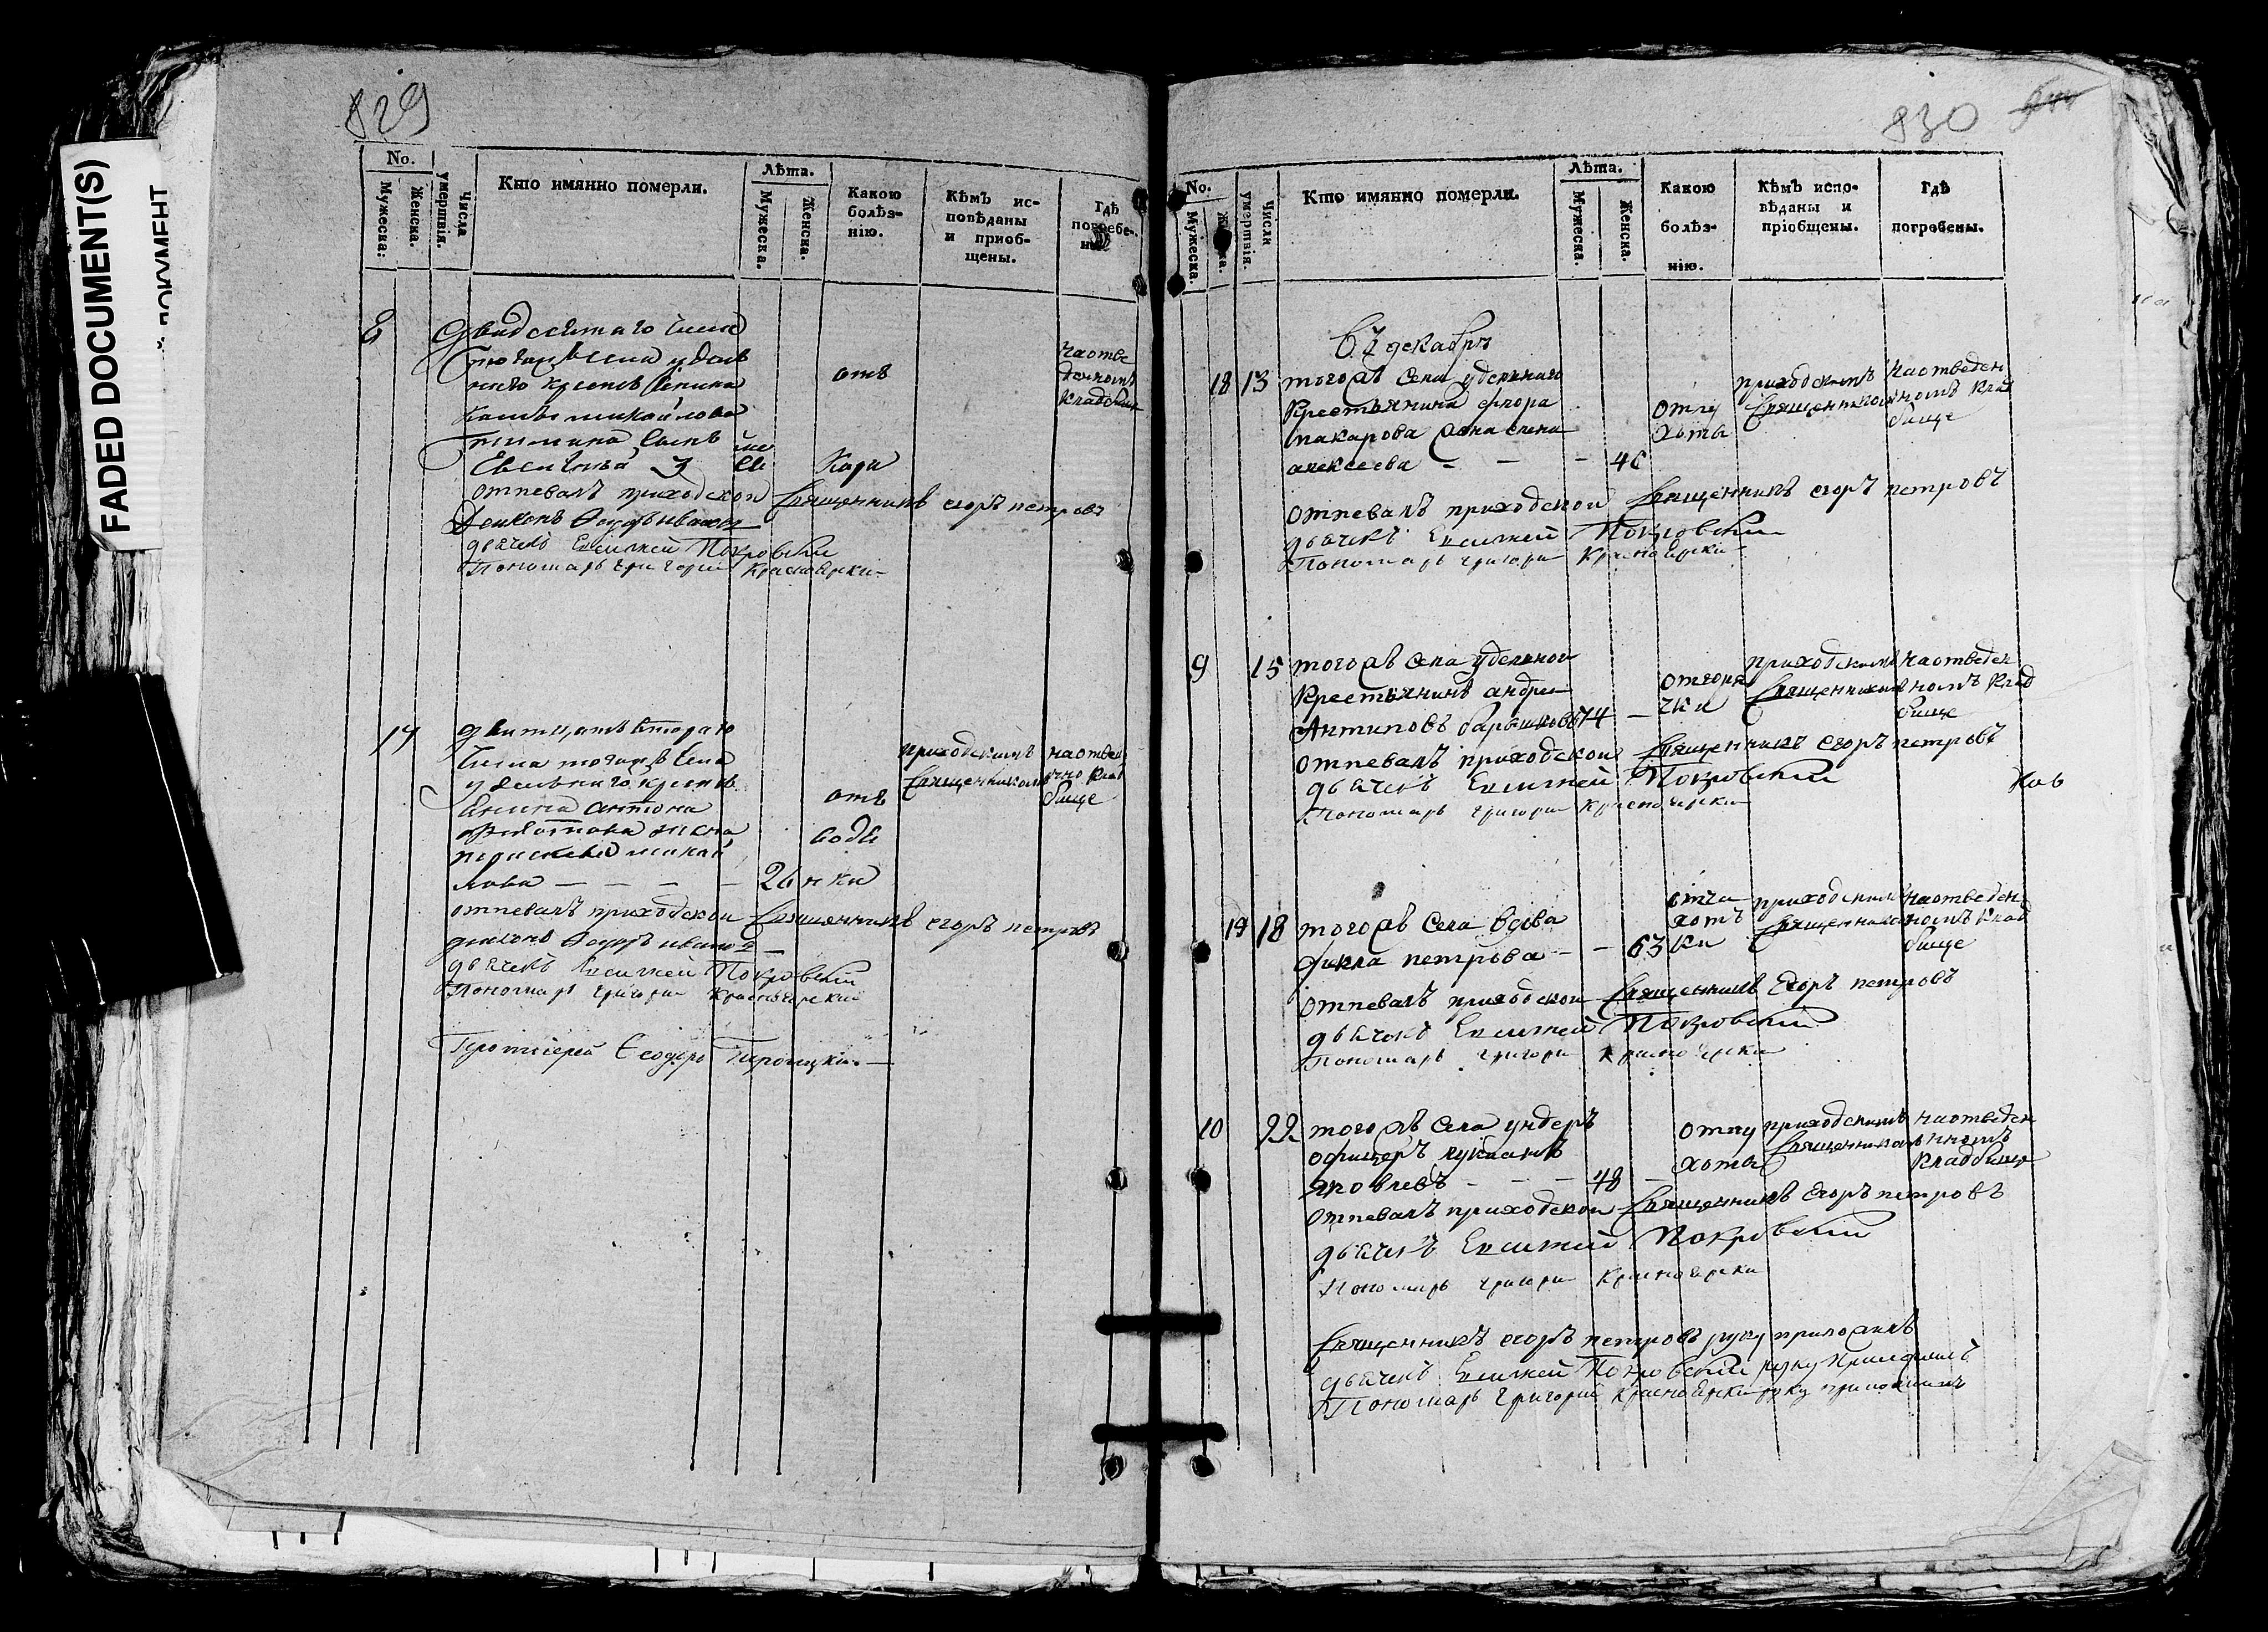 FADED DOCUMENT(S)
829
No.
Мужеска:
Женска.
Числа умертвія.
Кто имянно померли.
Лѣта.
Мужеска.
Женска.
Какою
болѣз-
нію.
Кѣмъ ис-
повѣданы
и приоб-
щены.
Гдѣ
погребе-
8
двадсетаго числа
тогожъ села удель
наго крестья
михайлова
сынъ
3
отъ
кори
на отве
денномъ
кладбищ
отпевалъ приходской священникъ егоръ петровъ
Диконъ Федоръ ивановъ
дьячекъ Евсигней Покровский
Пономарь григорий Красноярски
17
числа тогожъ села
удельнаго крестья
янина антона
жена
михай
лова — — — — 26
отъ
воде
нки
приходскимъ
священникомъ
на отведе
нно клад
бище
отпевалъ приходской священникъ егоръ петровъ
диконъ Федоръ иванов
дьячекъ Евсигней Покровский
Пономарь григори Красноярский
Протоіерей Феодоръ
830
No.
Мужеска
Числа умертвія.
Кто имянно померли.
Лѣта.
Мужеска.
Женска.
Какою
болѣз-
нію.
Кѣмъ испо-
вѣданы и
пріобщены.
Гдѣ
погребены.
В декабрѣ
18 13 тогожъ села удельнаго
крестьянина егора
макарова жена елена
алексеева - — - 40
отпу
хоты
приходскимъ
священником
на отведен
номъ клад
бище
отпевалъ приходской священникъ егоръ петровъ
дьячекъ Евсигней Покровский
Пономарь григори Красноярски
9 15 тогожъ села удельной
крестьянинъ андрей
Антиповъ барышковъ 74 —
отгоря
чки
приходскимъ
священником
на отведен
номъ клад
бище
отпевалъ приходской священникъ егоръ петровъ
дьячекъ Евсигней Покровский
Пономарь григори Красноярски
19 18 тогожъ села вдова
фикла петрова - - 63
отча
хот
ки
приходским
священником
на отведен
номъ клад
бище
отпевалъ приходской священникъ Егоръ петровъ
дьячекъ Евсигней Покровский
Пономарь григори Красноярски
10 22 тогожъ села ундеръ
офицеръ лукианъ
Яковлевъ - - - 48 -
отпу
хоты
приходскимъ
священникомъ
на отведен
номъ
кладбище
отпевалъ приходской священникъ Егоръ петровъ
дьячекъ Евсигней Покровский
Пономарь григори Красноярски
священникъ егоръ петровъ руку приложилъ
дьячекъ Евсигней Покровский руку Приложилъ
Пономарь григорий Красноярски руку приложилъ